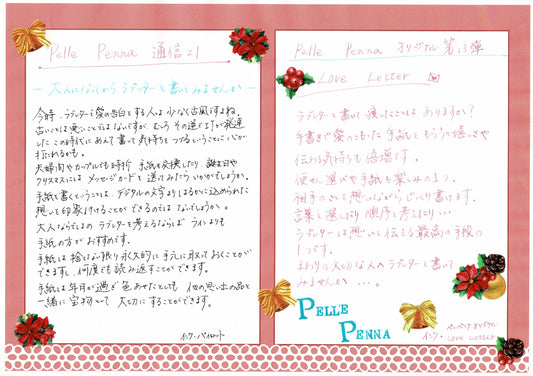 Pelle Penna 通信 21
大人になってからラブレターを書いてみませんか
今時、ラブレターで愛の告白をする人は少なく古風ですよね。
古いことは悪いことではないですが、むしろその逆でITが発達
したこの時代にあえて書いて気持ちをつづるということに心が
打たれるかも。
夫婦間やカップルでも時折 手紙を交換したり、誕生日や
クリスマスには メッセージカードを送ってみたらいかがでしょうか。
手紙を書くということは、デジタルの文字よりはるかに込められた
想いを印象付けることができるのではないでしょうか。
大人ならではのラブレターを考えるならば ラインよりも
手紙の方がおすすめです。
手紙は捨てない限り永久的に手元に取っておくことが
できますし、何度でも読み返すことができます。
手紙は年月が過ぎ色あせたとしても 他の思い出の品と
一緒に宝物として 大切にすることができます。
インク・パイロット
Pelle Penna オリジナル 第13弾
Love Letter
ラブレターを書いて渡したことは ありますか?
手書きで愛のこもった手紙をもらうと嬉しさや
伝わる気持ちも倍増です。
便せん選びや手紙も楽しみの1つ。
相手のことを想いながらじっくり書けます。
言葉を選んだり 順序を考えたり…
ラブレターは想いを伝える最高の手段の
1つです。
まわりの大切な人へラブレターを書いて
みませんか …。
PELLE
PENNA
ペレペンナオリジナル
インク・Love Letter